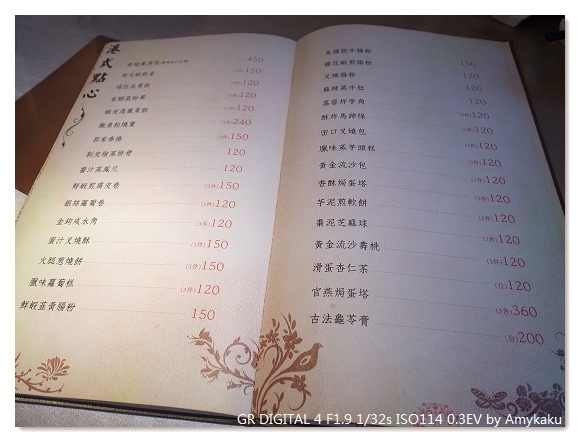 港式點心
450
150
120
120
蝦皮高麗菜餃 120
鮑魚松燒賣 240
郭家春捲 150
豉皮椒蒸排骨 120
醬汁蒸鳳爪 120
鮮蝦煎腐皮卷 (3件)150
蝦絲蘿蔔卷 (3件)120
金鈎咸水角 (3件)120
蜜汁叉燒酥 (3件)150
火腿蔥燒餅 (3件)150
臘味蘿蔔糕 (2件)120
鮮蝦韮黃腸粉 150
美國肥牛腸粉
櫻花蝦煎腸粉 150
叉燒腸粉 120
麻辣蒸牛肚 120
荔蓉炸芋角 120
酥炸馬蹄條 120
蜜口叉燒包 120
臘味蒸芋頭糕 120
黃金流沙包 120
香酥焗蛋塔 (3件)120
芋泥煎軟餅 (3件)120
棗泥芝麻球 (3件)120
黃金流沙壽桃 (3件)120
滑蛋杏仁茶 (位)120
官燕焗蛋塔 (3件)360
古法龜苓膏 (位)200
GR DIGITAL 4 F1.9 1/32s ISO114 0.3EV by Amykaku